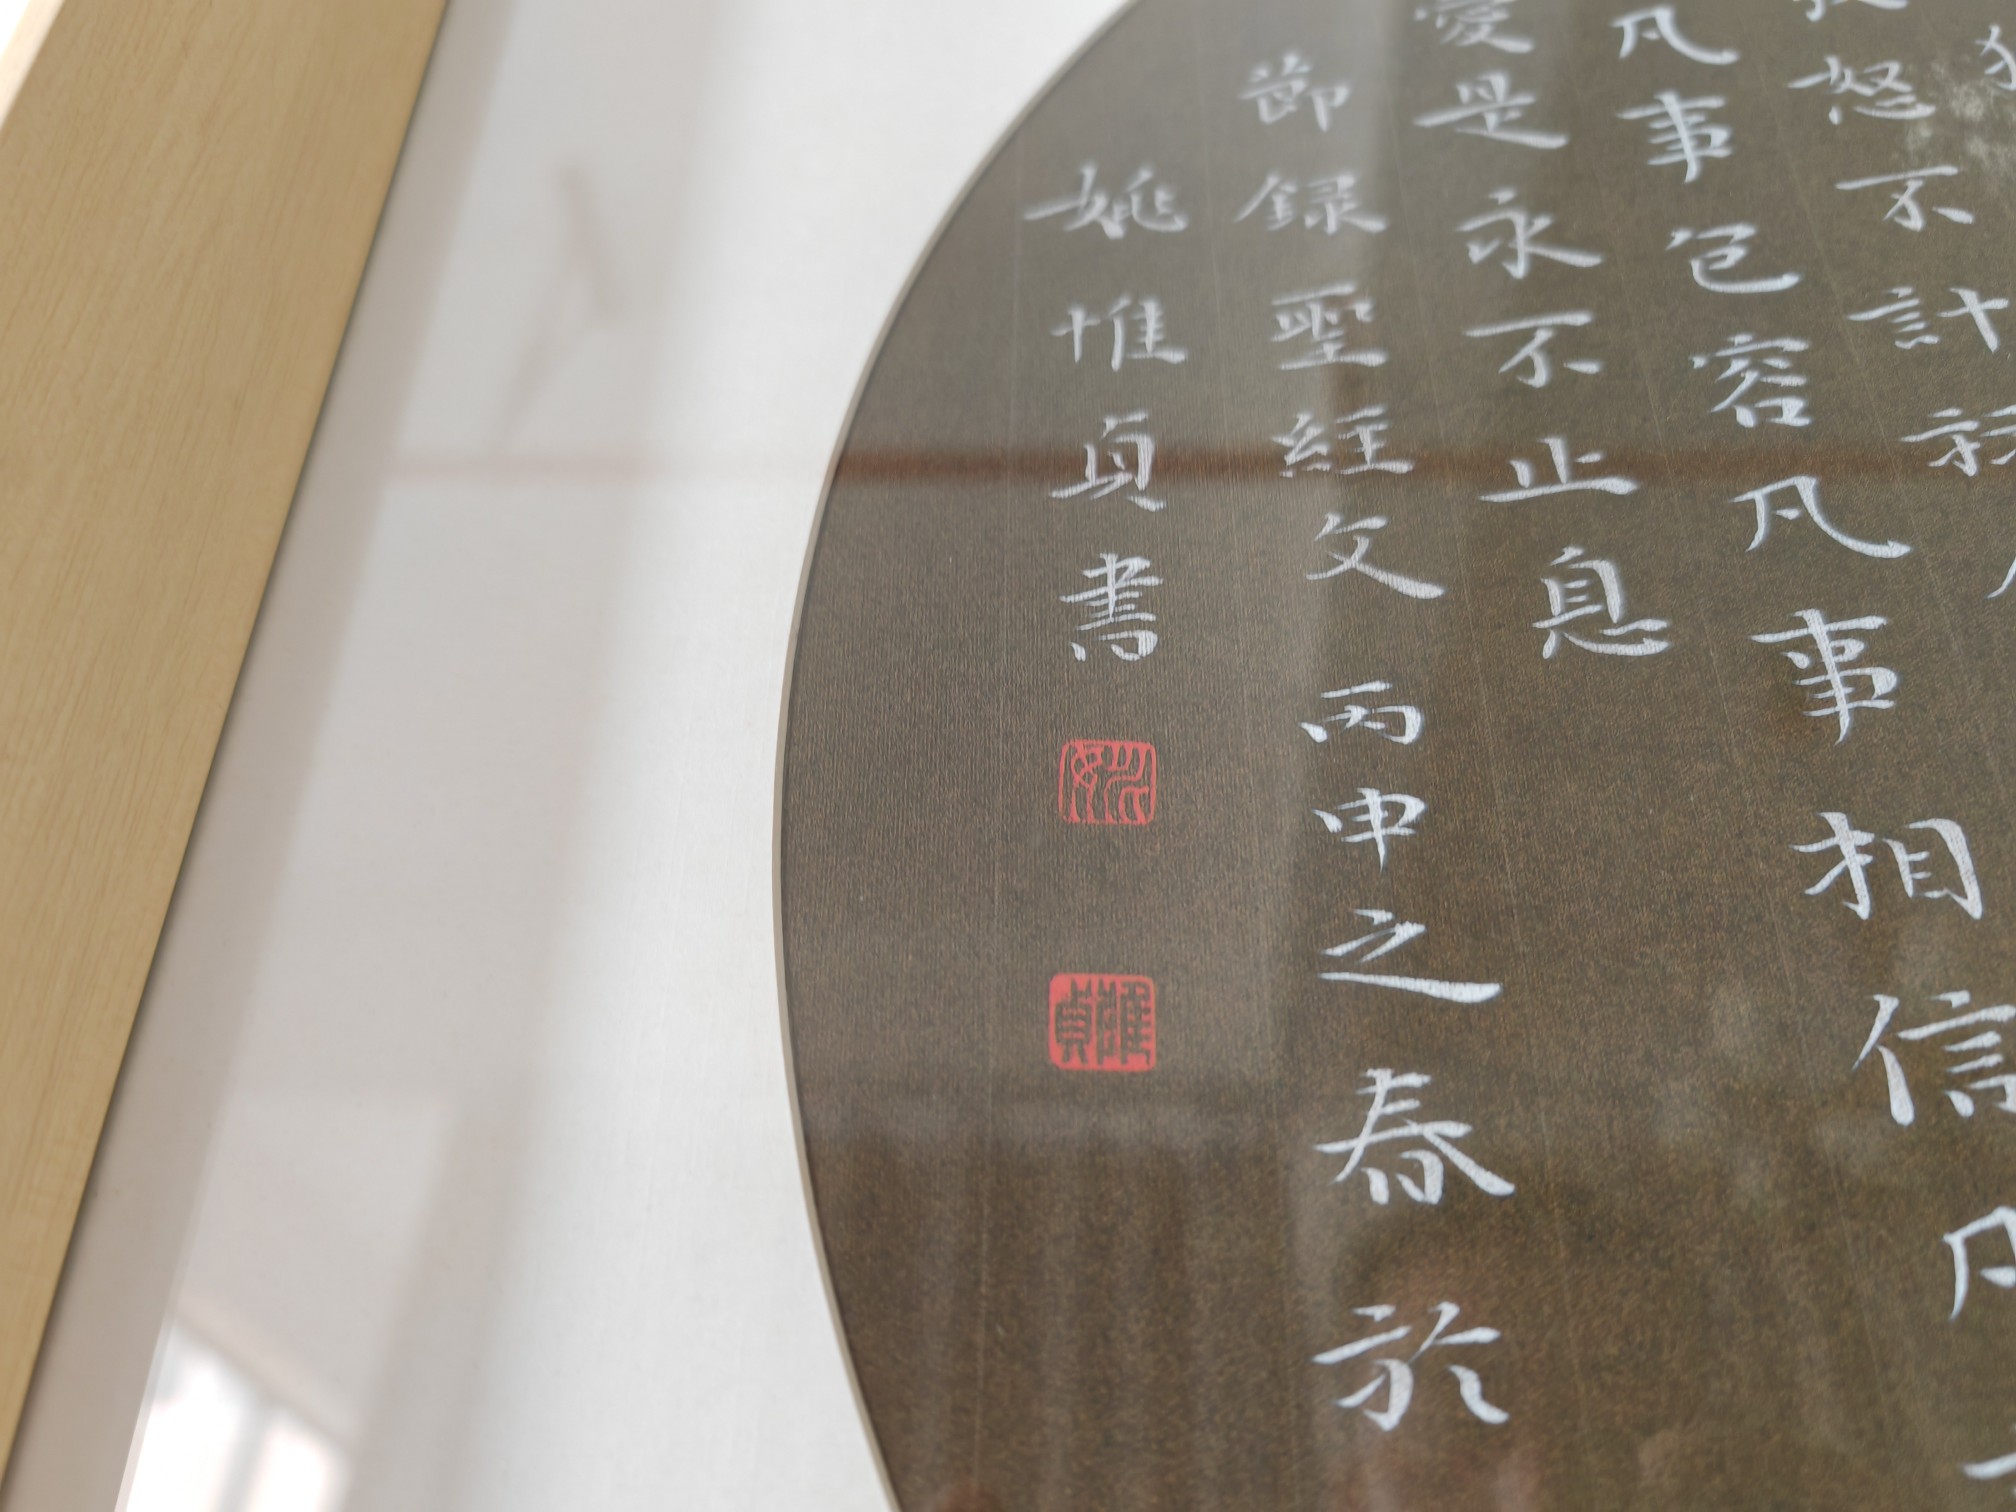 怒不計
凡事包容凡事相信凡
愛是永不止息
節録聖經文丙申之春於
姚惟貞書
姚
惟貞